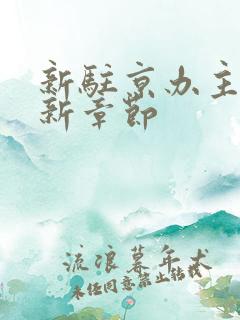 新駐京办主
新章節
流浪暮年犬
未任同意禁止转载